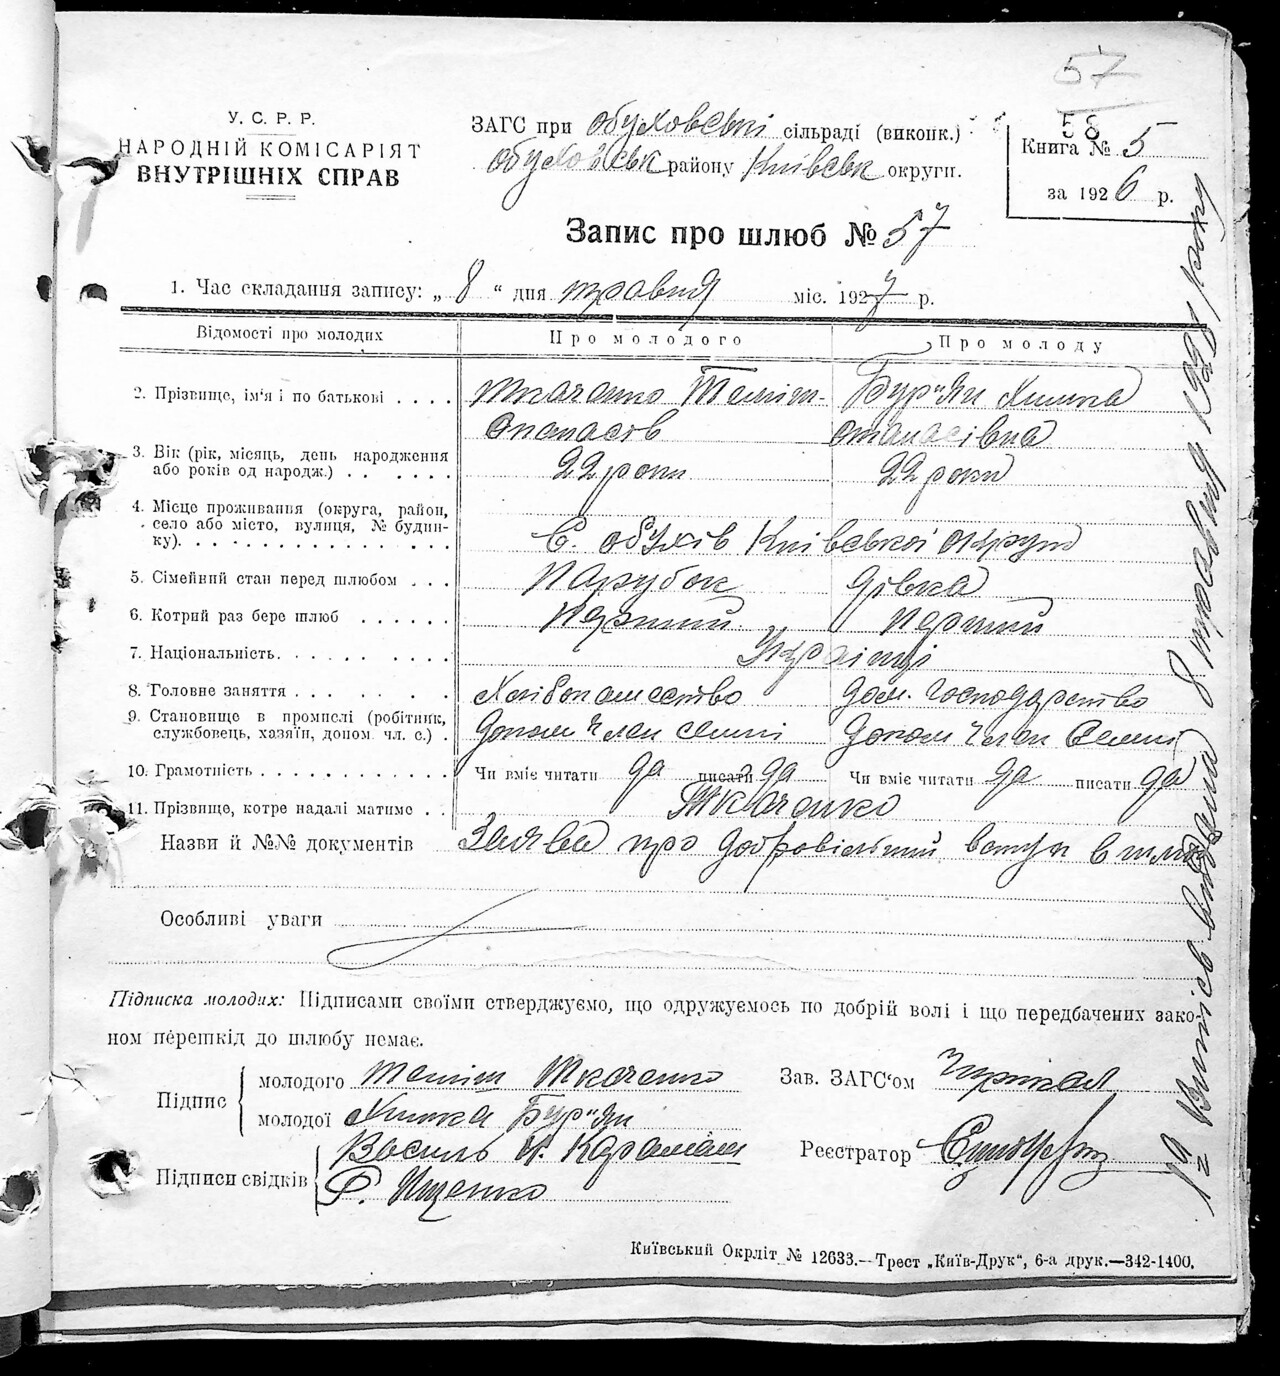 57
У. С. Р. Р.
НАРОДНІЙ КОМІСАРІЯТ
ВНУТРІШНІХ СПРАВ
ЗАГС при Обуховські сільраді (виконк.)
Обуховськ району Київськ округи.
58
Книга № 5
за 1926 р.
Запис про шлюб № 57
1. Час складання запису: „ 8 “ дня травня міс. 1927 р.
Відомості про молодих Про молодого Про молоду
2. Прізвище, ім'я і по батькові . . . . Ткаченко Бур'ян Химка
Опанасів Опанасівна
3. Вік (рік, місяць, день народження
або років од народж.) . . . . . . 22 роки 22 роки
4. Місце проживання (округа, район,
село або місто, вулиця, № будин-
ку). . . . . . . . . . . . . . . . С. Обухів Київської округи
5. Сімейний стан перед шлюбом . . . Парубок Дівка
6. Котрий раз бере шлюб . . . . . . Перший Перший
7. Національність. . . . . . . . . . Українці
8. Головне заняття . . . . . . . . Хліборобство дом. господарство
9. Становище в промислі (робітник,
службовець, хазяїн, допом. чл. с.) . допом член семні допом член семні
10. Грамотність . . . . . . . . . . . Чи вміє читати да писати да Чи вміє читати да писати да
11. Прізвище, котре надалі матиме . . Ткаченко
Назви й №№ документів Заява про добровільний вступ в шлюб
Особливі уваги
Підписка молодих: Підписами своїми стверджуємо, що одружуємось по добрій волі і що передбачених зако-
ном перешкід до шлюбу немає.
Підпис молодого Ткаченко
молодої Химка Бур'ян
Підписи свідків Василь И.
Р. Іщенко
Зав. ЗАГС'ом
Реєстратор
Київський Окрліт № 12633.—Трест „Київ-Друк“, 6-а друк.—342-1400.
Витісь видана 8 травня 1927 року